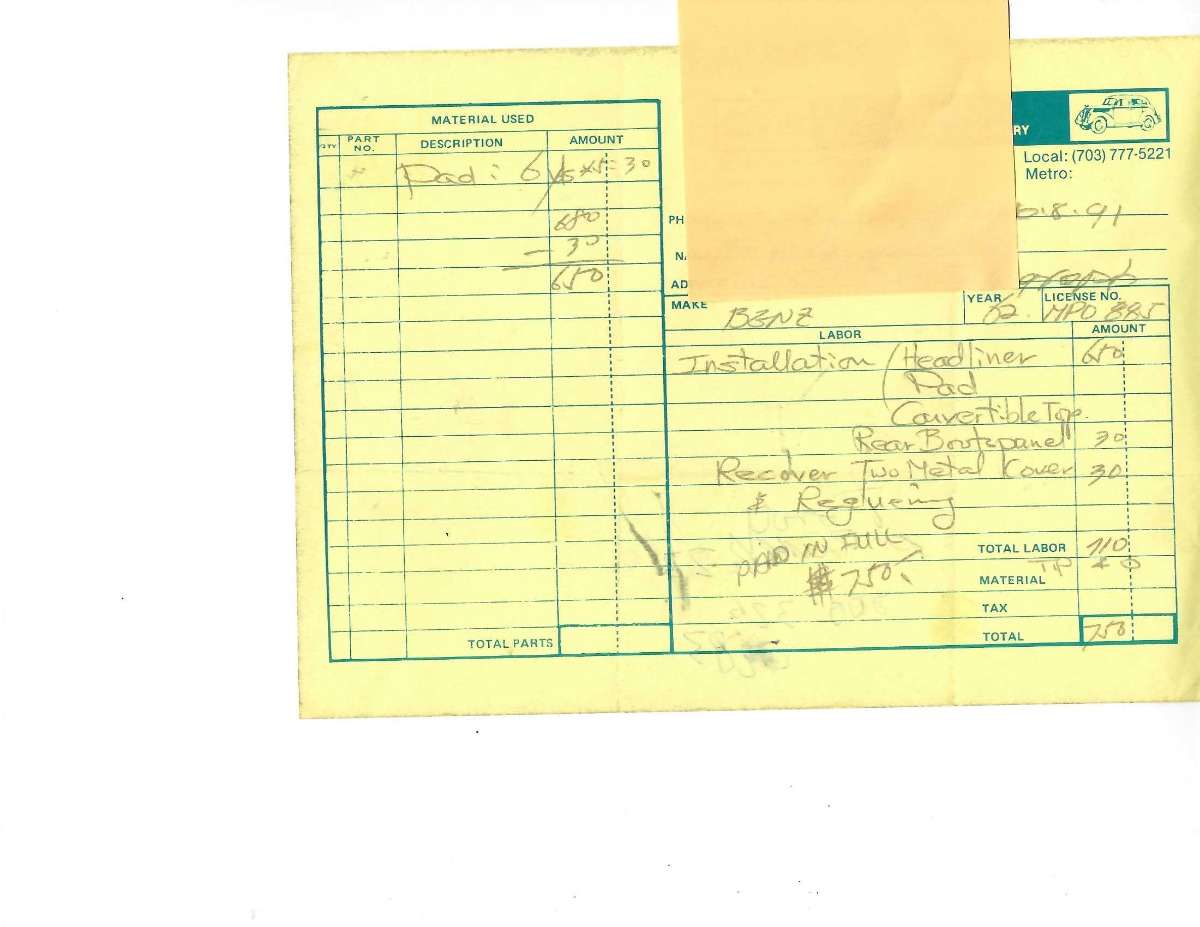 MATERIAL USED
QTY PART NO. DESCRIPTION AMOUNT
Pad: 6 x5= 30
680
- 30
650
TOTAL PARTS
RY
Local: (703) 777-5221
Metro:
8.91
PH
AD
MAKE BENZ YEAR 62 LICENSE NO. MPO 885
LABOR AMOUNT
Installation / Headliner 650
Pad
Convertible Top.
Rear Boot & panel 30
Recover Two Metal Cover 30
& Reglueing
PAID IN FULL
$ 750.
TOTAL LABOR 710
MATERIAL TIP 40
TAX
TOTAL 750